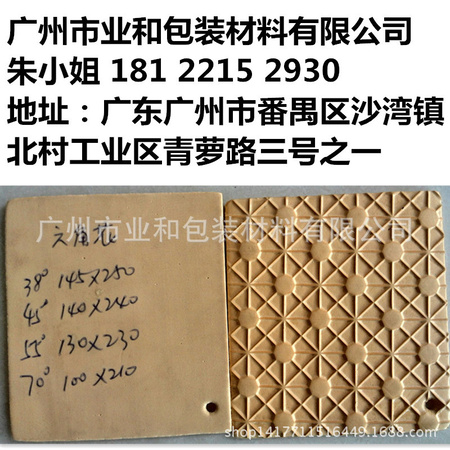 广州市业和包装材料有限公司
朱小姐 181 2215 2930
地址：广东广州市番禺区沙湾镇
北村工业区青萝路三号之一
广州市业和包装材料有限公司
六角花
38° 145X250
45° 140X240
55° 130X230
70° 100X210
shop1417711516449.1688.com